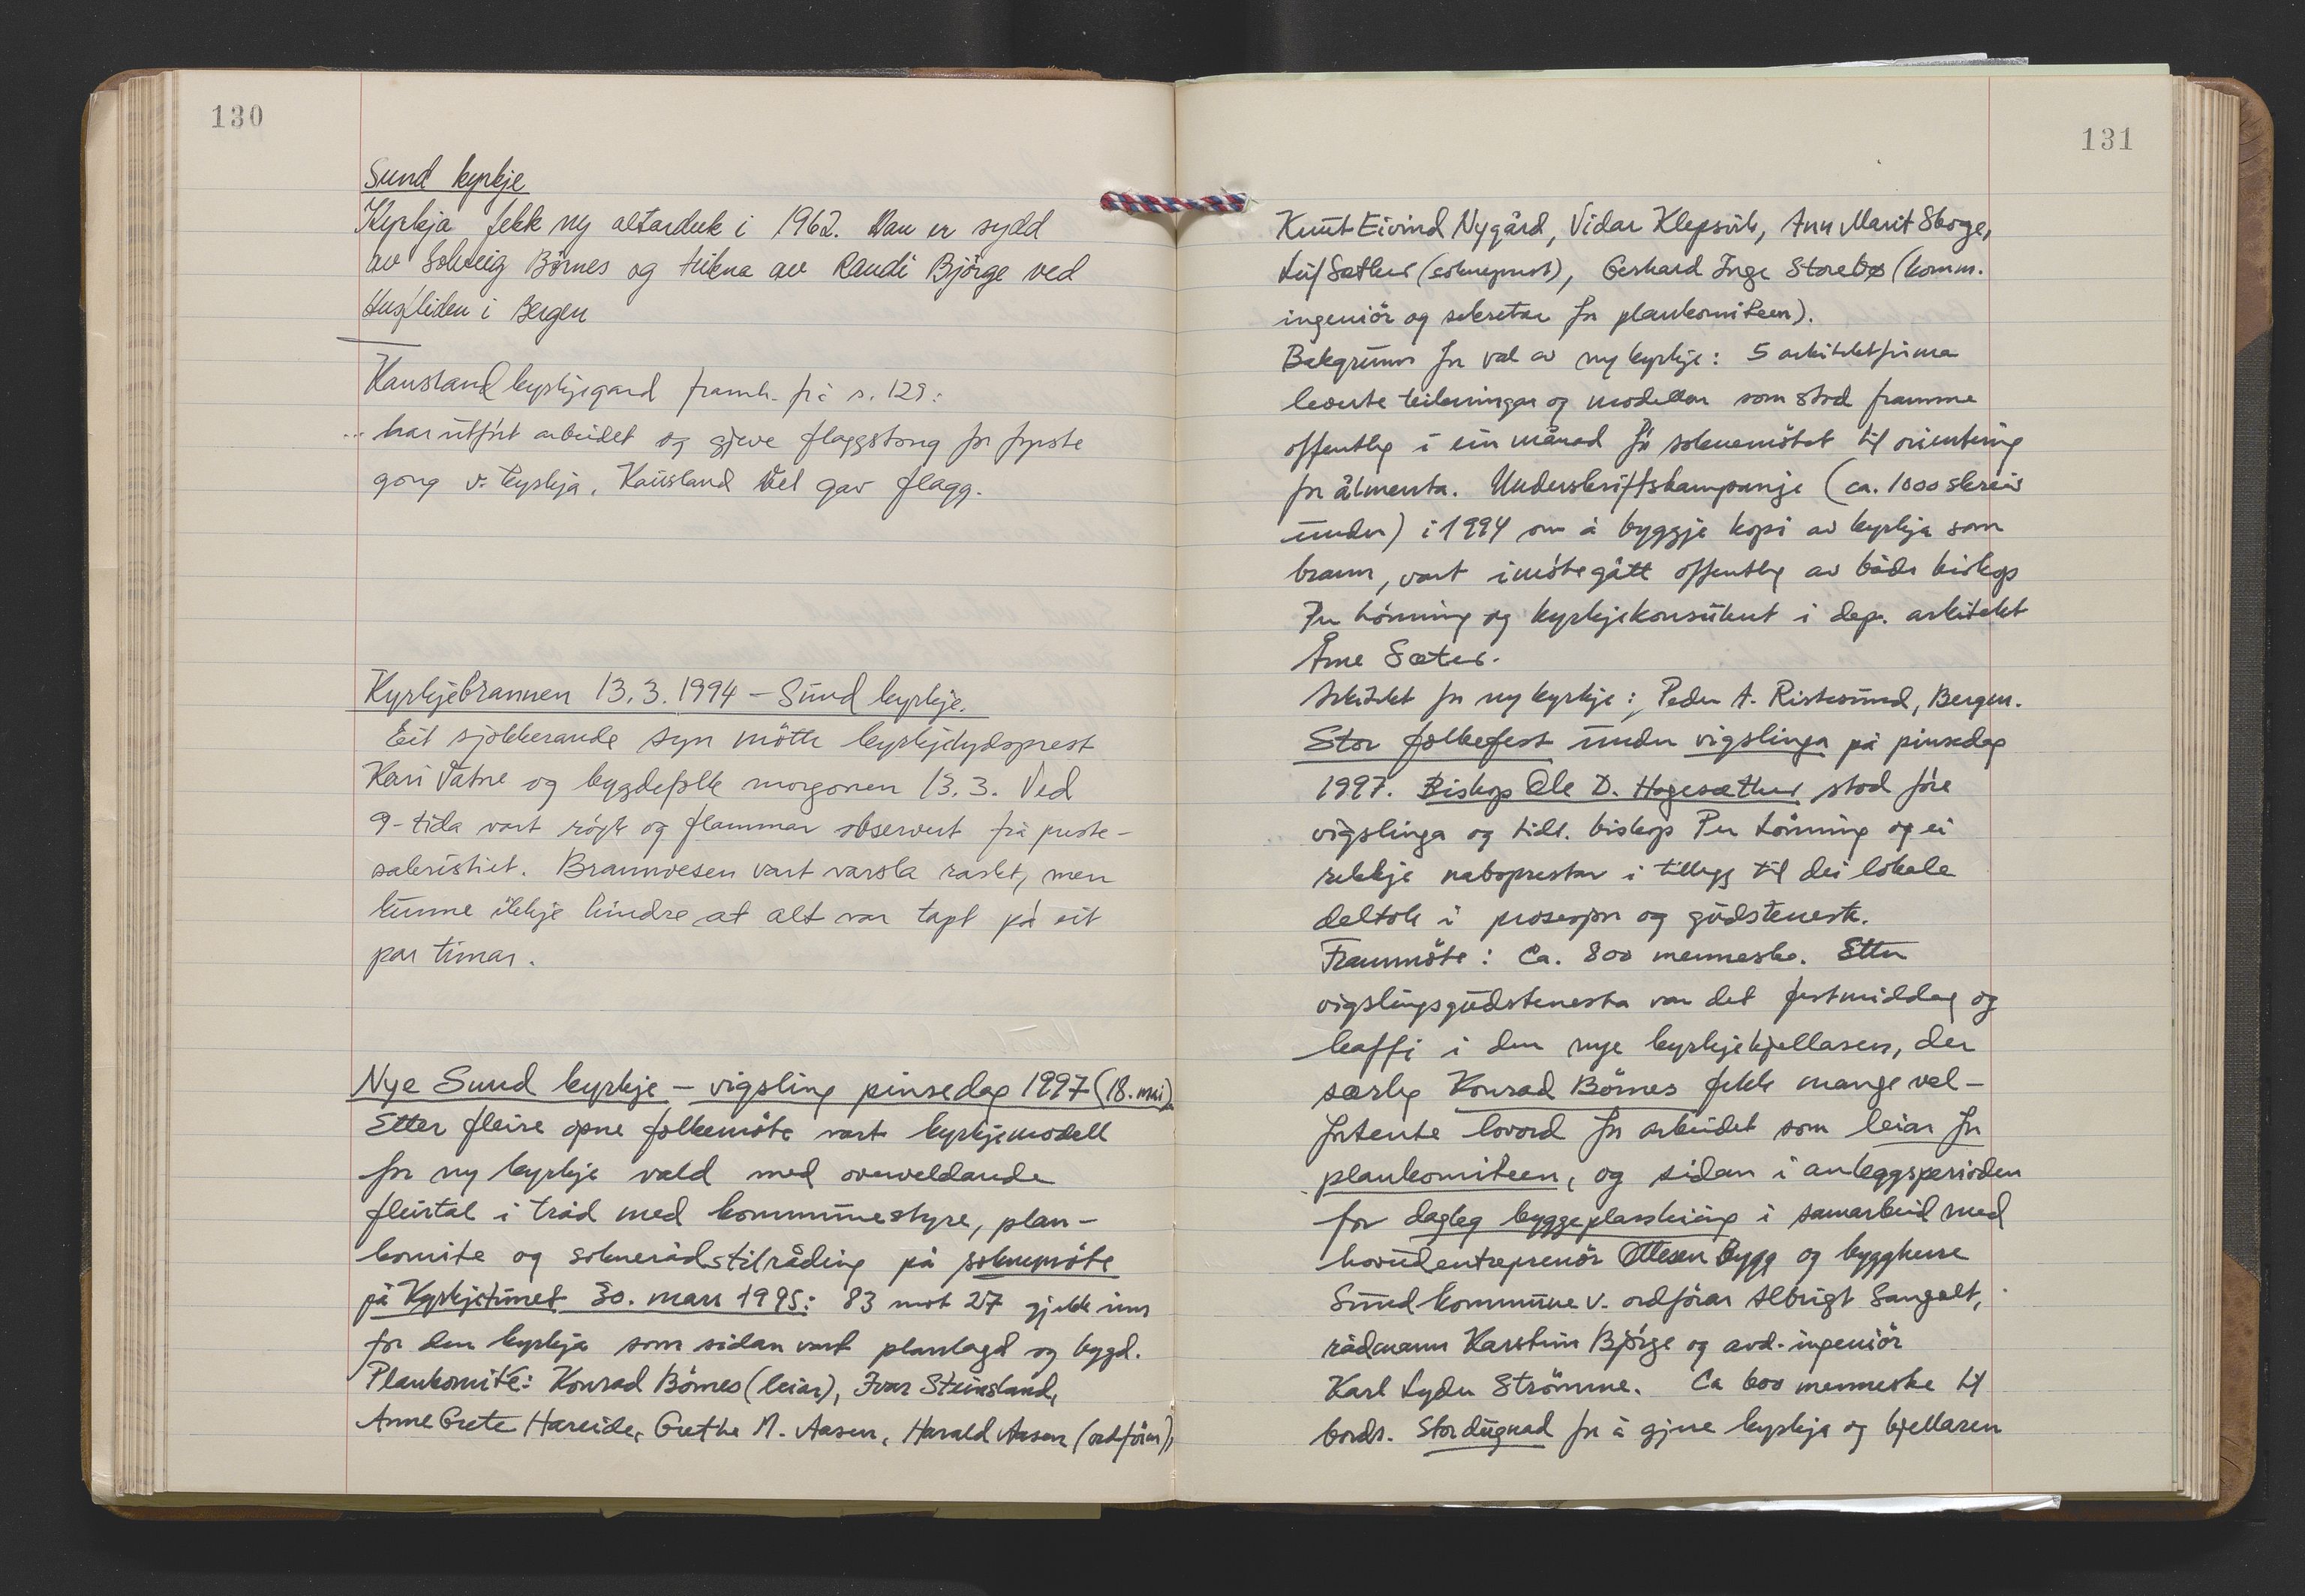 130
Sund kyrkje
Kyrkja fekk ny altarduk i 1962. Den er sydd
av Solveig Börnes og teikna av Randi Björge ved
Husfliden i Bergen
Kausland kyrkjegard framh. frå s. 129:
... har utført arbeidet og gjeve flaggstong for fyrste
gong v. kyrkja. Kausland Vel gav flagg.
Kyrkjebrannen 13.3.1994 – Sund kyrkje.
Eit sjokkerande syn mötte kyrkjelydsprest
Kari Vatne og bygdefolk morgonen 13.3. Ved
9-tida vart røyk og flammar observert frå preste-
sakristiet. Brannvesen vart varsla raskt, men
kunne ikkje hindre at alt var tapt på eit
par timar.
Nye Sund kyrkje – vigsling pinsedag 1997 (18. mai)
Etter fleire opne folkemöte vart kyrkjemodell
for ny kyrkje vald med overveldande
fleirtal i tråd med kommunestyre, plan-
komite og soknerådstilråding på soknemöte
på Kyrkjetunet 30. mars 1995: 83 mot 27 gjekk inn
for den kyrkja som sidan vart planlagd og bygd.
Plankomité: Konrad Börnes (leiar), Ivar Steinsland,
Anne Grete Hareide, Grethe M. Aasen, Harald Aasen (ordförar),
131
Knut Eivind Nygård, Vidar Klepsvik, Ann Marit Skoge,
Leif Sæther (sokneprest), Gerhard Inge Storebø (komm.
ingeniör og sekretær for plankomiteen).
Bakgrunn for val av ny kyrkje: 5 arkitektfirma
leverte teikningar og modellar som stod framme
offentleg i ein månad før soknemötet til orientering
for ålmenta. Underskriftskampanje (ca. 1000 skreiv
under) i 1994 om å byggje kopi av kyrkja som
brann, vart imötegått offentleg av både biskop
Per Lönning og kyrkjekonsulent i dep. arkitekt
Arne Sæter.
Arkitekt for ny kyrkje: Peder A. Ristesund, Bergen.
Stor folkefest under vigslinga på pinsedag
1997. Biskop Ole D. Hagesæther stod føre
vigslinga og tidl. biskop Per Lönning og ei
rekkje naboprestar i tillegg til dei lokale
deltok i prosesjon og gudsteneste.
Frammöte: Ca. 800 menneske. Etter
vigslingsgudstenesta var det festmiddag og
kaffi i den nye kyrkjekjellaren, der
særleg Konrad Börnes fekk mange vel-
fortente lovord for arbeidet som leiar for
plankomiteen, og sidan i anleggsperioden
for dagleg byggeplassleiing i samarbeid med
hovudentreprenör Ottesen Bygg og byggherre
Sund kommune v. ordförar Albrigt Sangolt,
rådmann Karstein Björge og avd. ingeniör
Karl Lyder Strömme. Ca 600 menneske til
bords. Stor dugnad for å gjere kyrkja og kjellaren